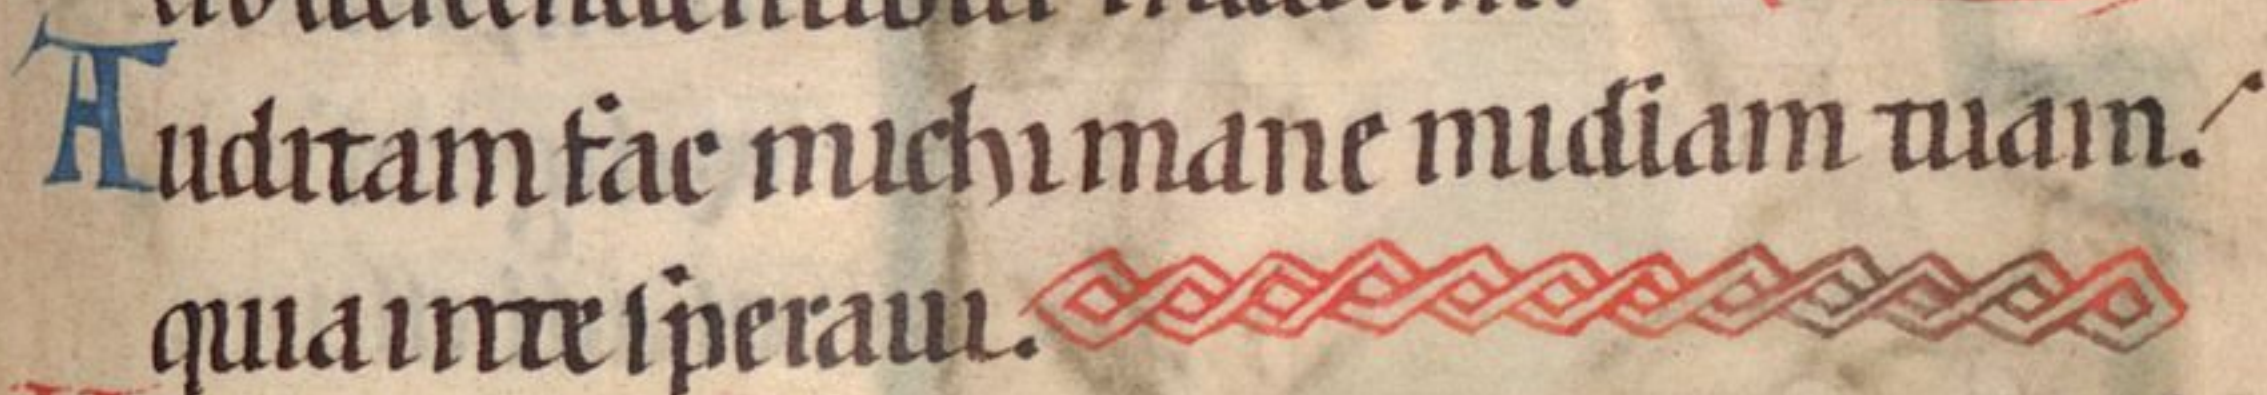 Auditam fac michi mane midiam tuam.
quia in te speraui.